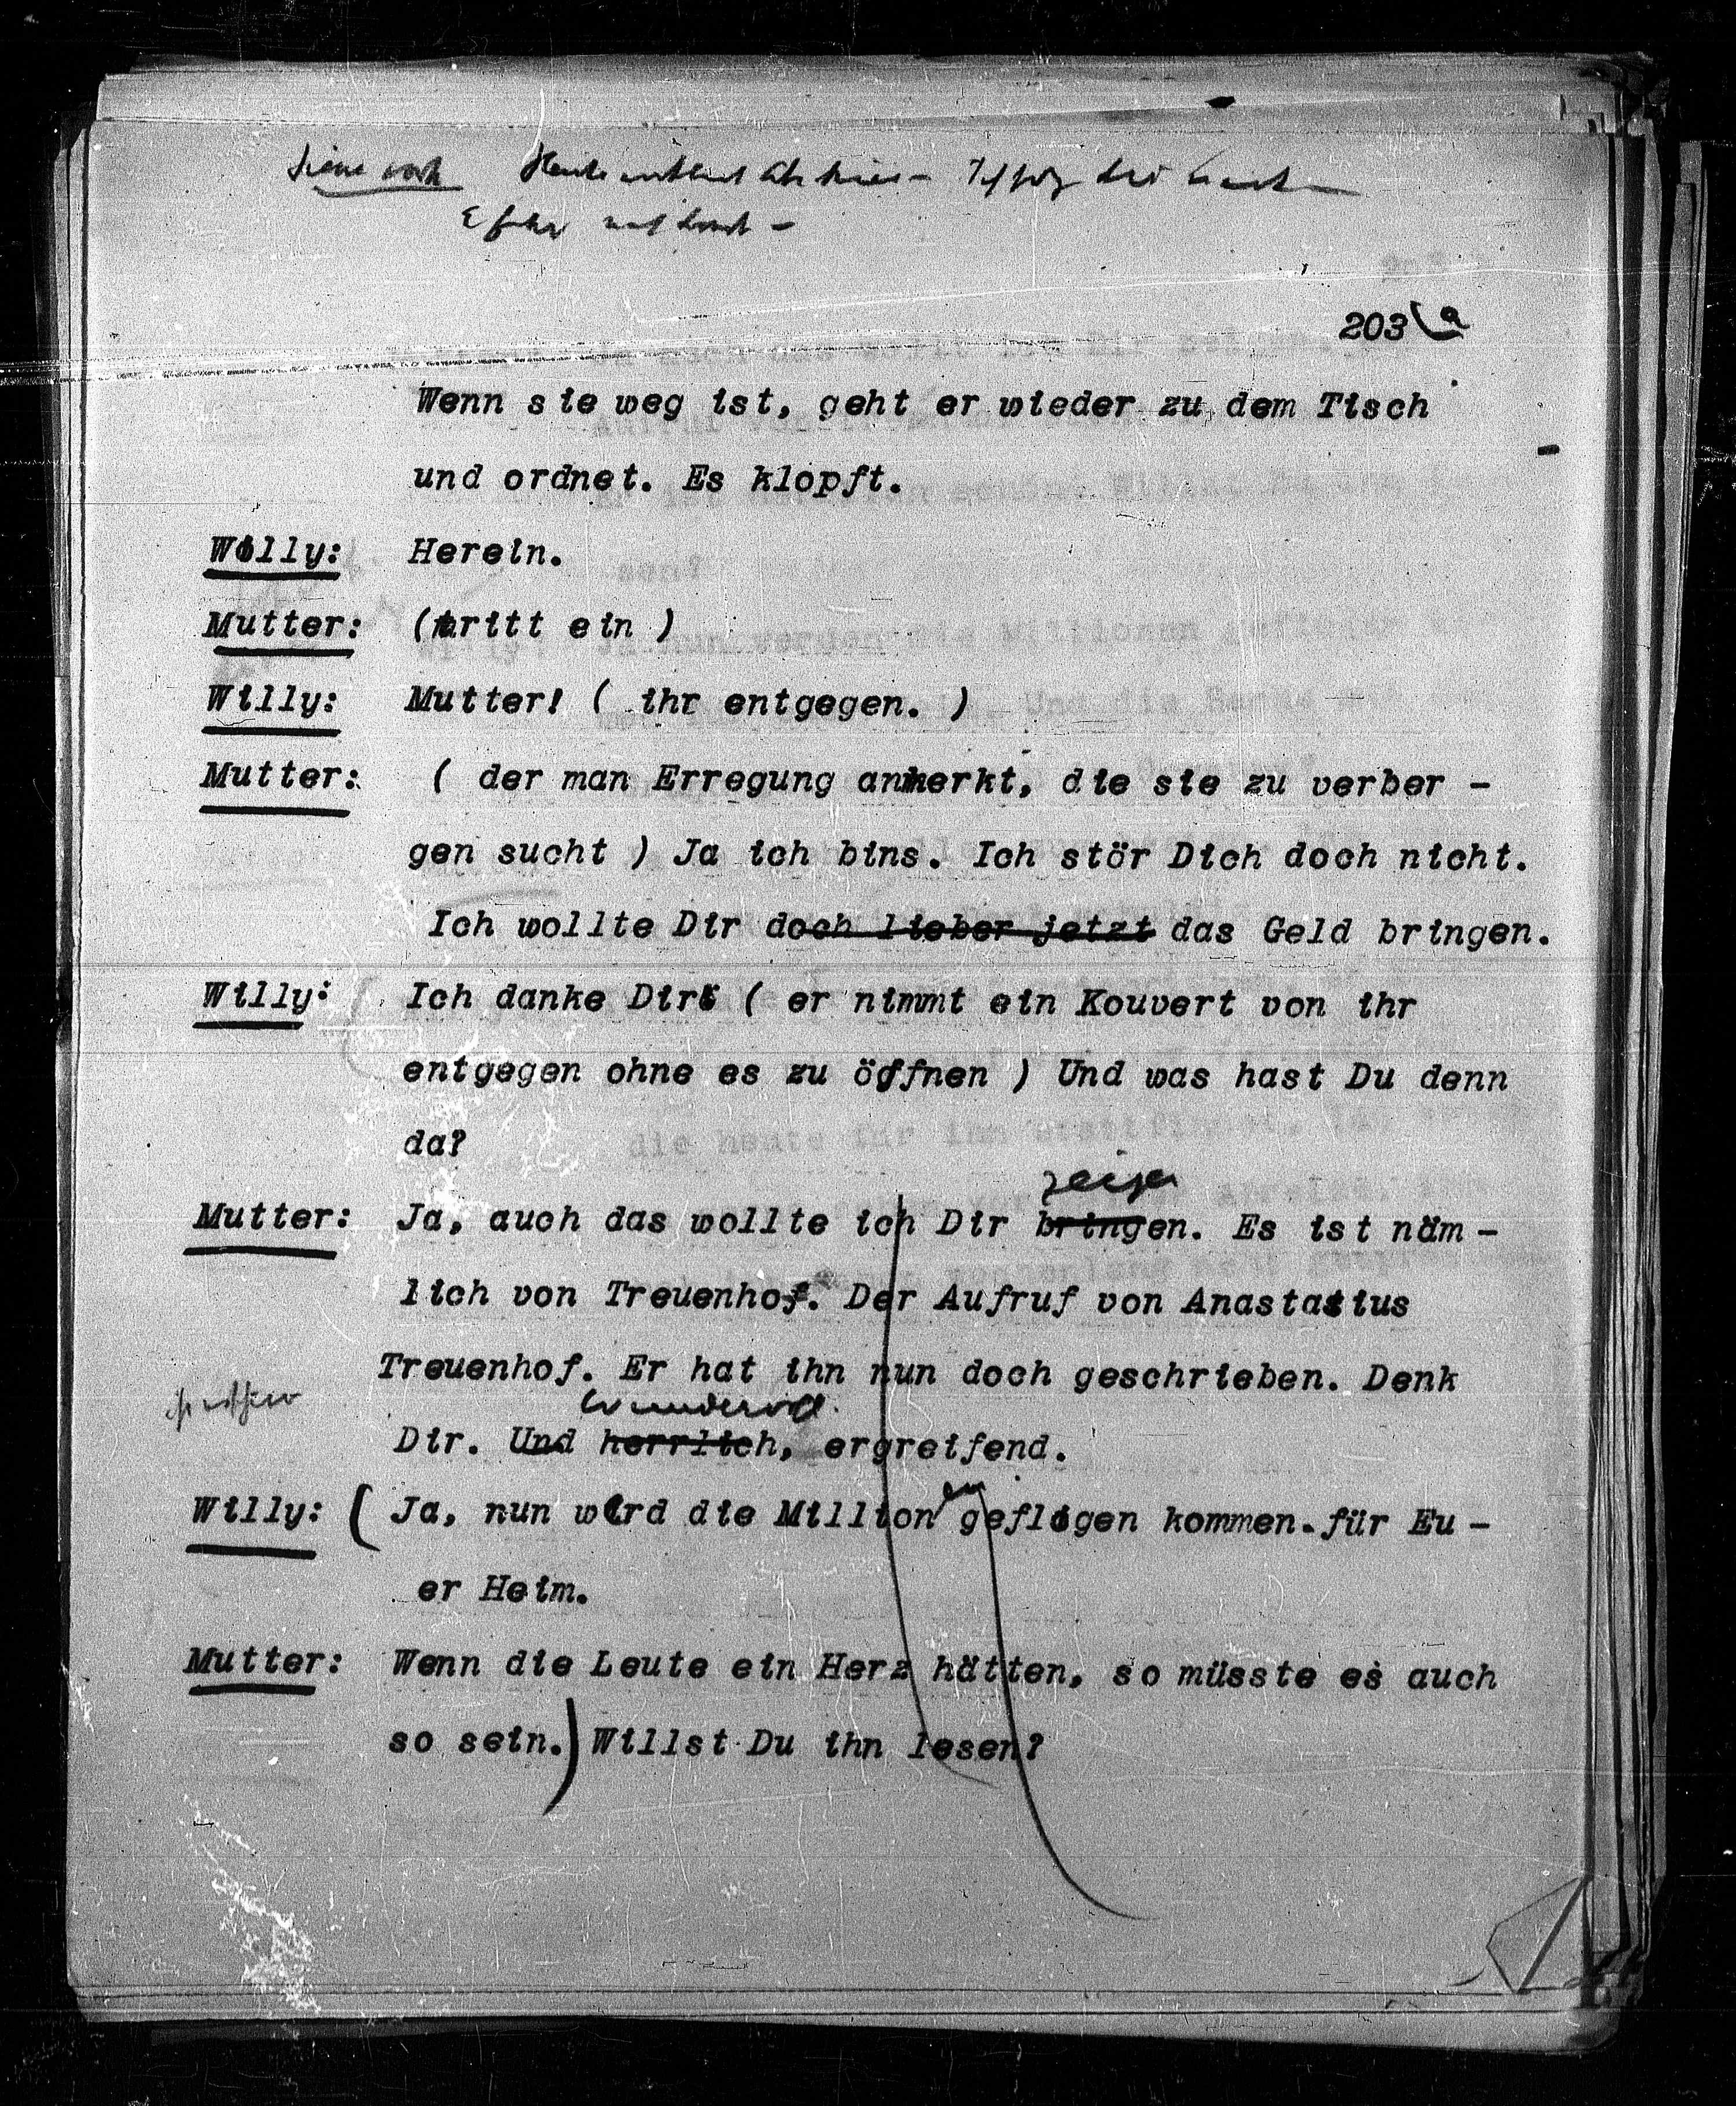 203a
Wenn sie weg ist, geht er wieder zu dem Tisch
und ordnet. Es klopft.
Willy: Herein.
Mutter: (tritt ein )
Willy: Mutter! ( ihr entgegen. )
Mutter: ( der man Erregung anmerkt, die sie zu verber -
gen sucht ) Ja ich bins. Ich stör Dich doch nicht.
Ich wollte Dir doch lieber jetzt das Geld bringen.
Willy: Ich danke Dir ( er nimmt ein Kouvert von ihr
entgegen ohne es zu öffnen ) Und was hast Du denn
da?
zeigen
Mutter: Ja, auch das wollte ich Dir bringen. Es ist näm -
lich von Treuenhof. Der Aufruf von Anastasius
Treuenhof. Er hat ihn nun doch geschrieben. Denk
wundervoll.
Dir. Und herrlich, ergreifend.
en
Willy: ( Ja, nun wird die Million geflogen kommen.für Eu -
er Heim.
Mutter: Wenn die Leute ein Herz hätten, so müsste es auch
so sein.) Willst Du ihn lesen?